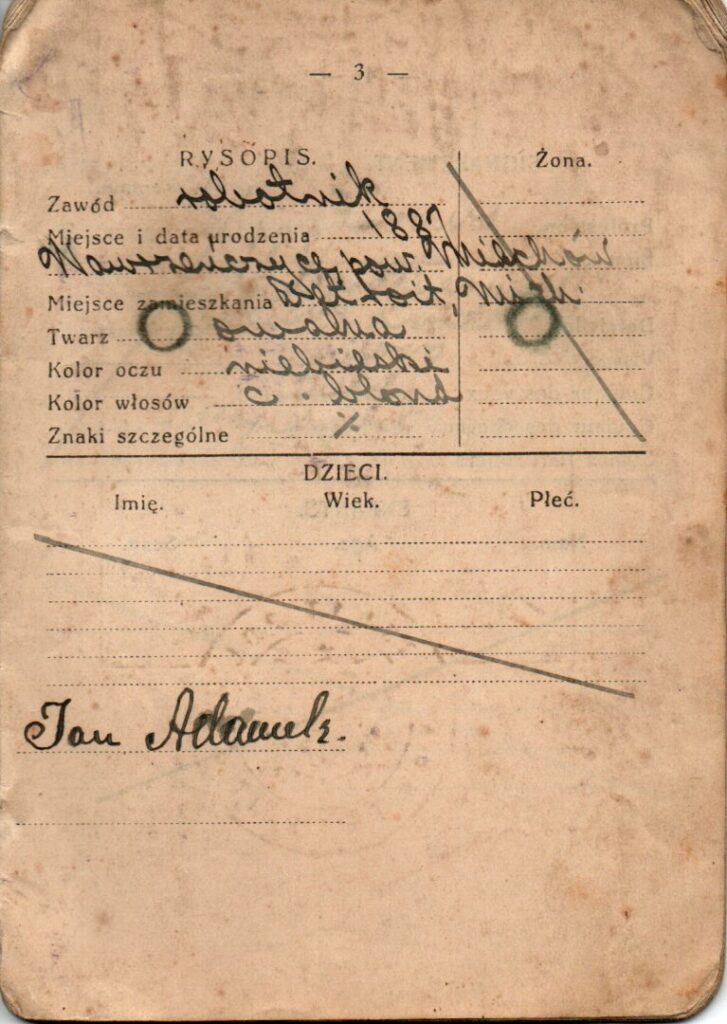 — 3 —
RYSOPIS. Żona.
Zawód robotnik
Miejsce i data urodzenia 1887
Wawrzeńczyce, pow. Miechów
Miejsce zamieszkania
Twarz owalna
Kolor oczu niebieski
Kolor włosów c. blond
Znaki szczególne %
DZIECI.
Imię. Wiek. Płeć.
Jan Adamek.